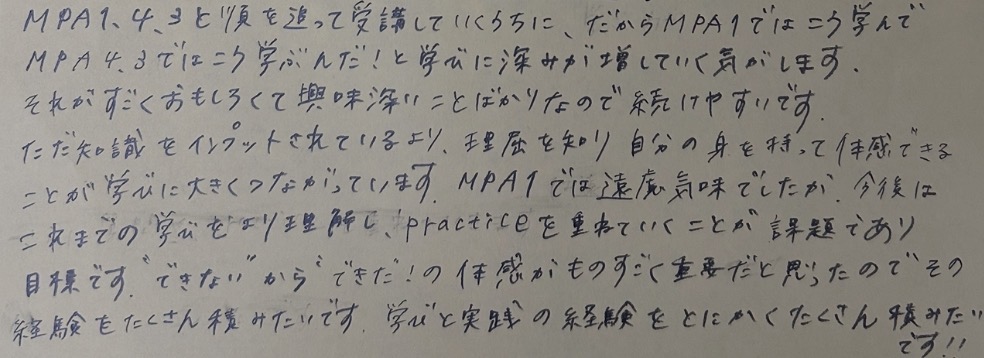 MPA1、4、3と順を追って受講していくうちに、だからMPA1ではこう学んで
MPA4、3ではこう学ぶんだ！と学びに深みが増していく気がします．
それがすごくおもしろくて興味深いことばかりなので続けやすいです．
ただ知識をインプットされているより、理屈を知り自分の身を持って体感できる
ことが学びに大きくつながっています．MPA1では遠慮気味でしたが、今後は
これまでの学びをより理解し、practiceを重ねていくことが課題であり
目標です．“できない”から“できた！の体感がものすごく重要だと思ったのでその
経験をたくさん積みたいです．学びと実践の経験をとにかくたくさん積みたい
です!!